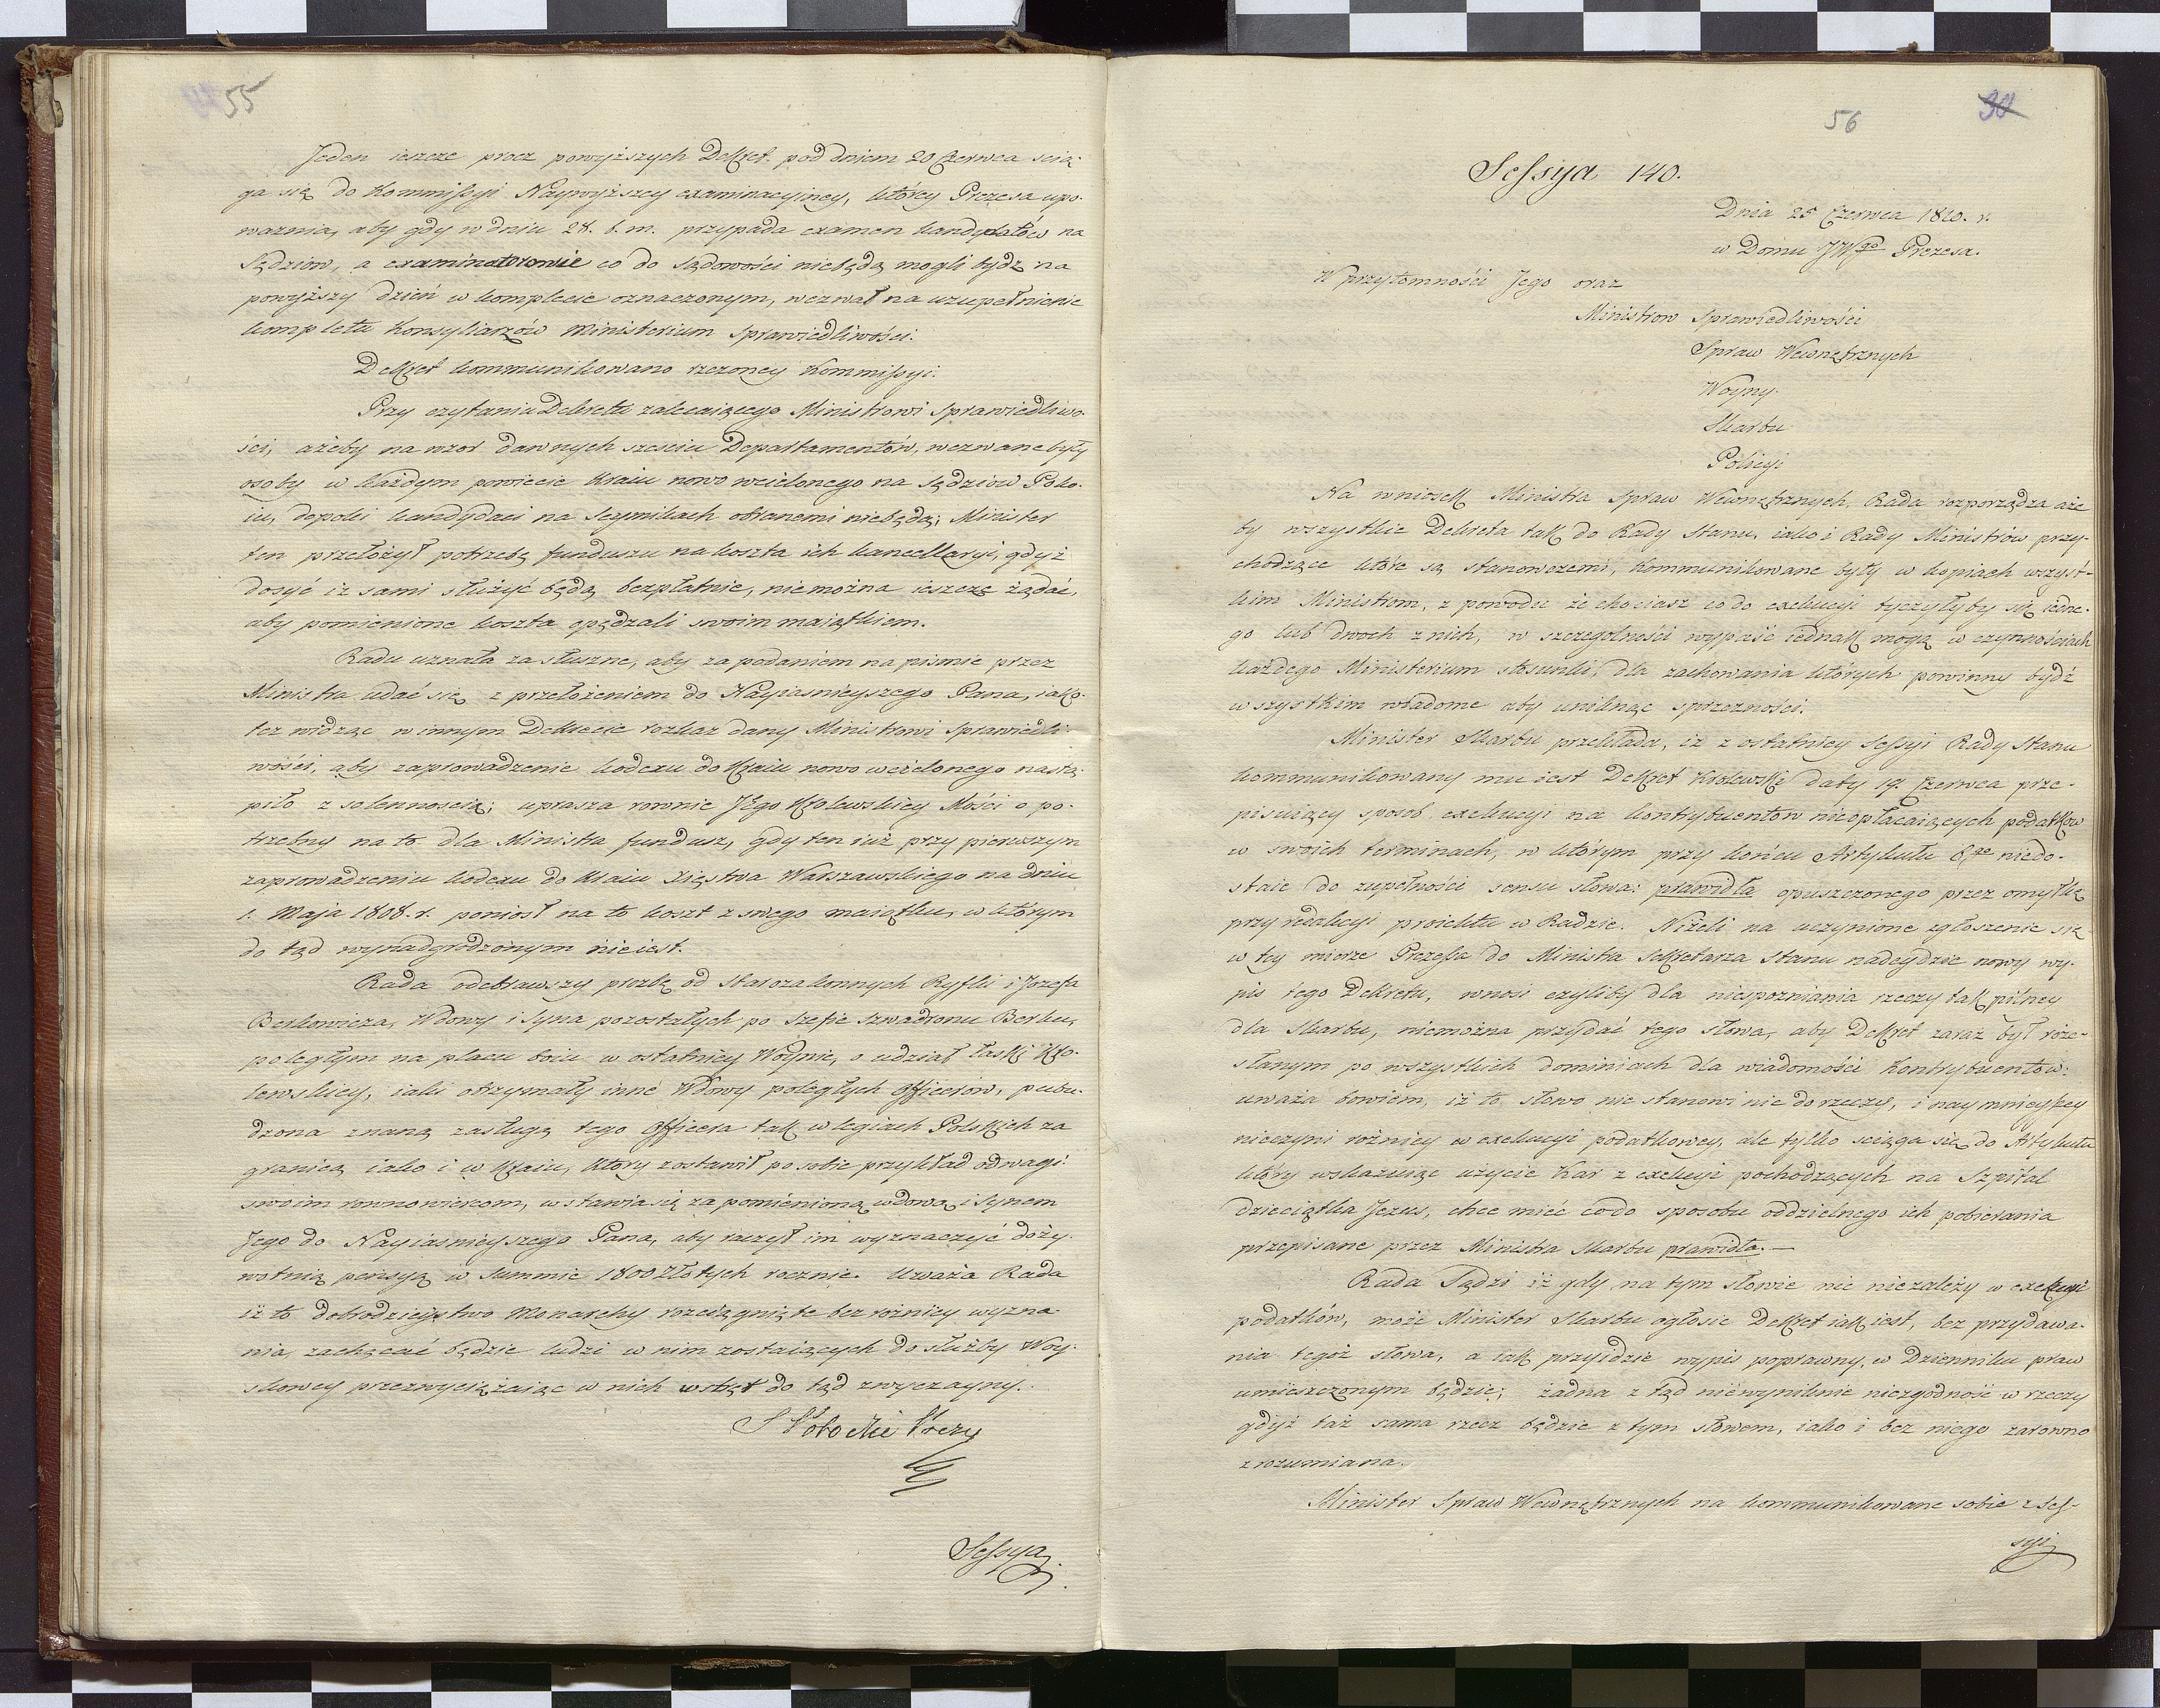 55
Jeden ieszcze procz powyższych Dekret pod dniem 20 Czerwca scią-
ga się do Kommissyi Naywyższey examinacyiney, którey Prezesa upo-
ważnia, aby gdy w dniu 28. b. m. przypada examen kandydatów na
Sędziow, a examinatorowie co do sądowości niebędą mogli bydź na
powyższy dzień w komplecie oznaczonym, wezwał na uzupełnienie
kompletu Konsyliarzów Ministerium Sprawiedliwości.
Dekret kommunikowano rzeczoney Kommissyi.
Przy czytaniu Dekretu zalecaiącego Ministrowi Sprawiedliwo-
ści, ażeby na wzor dawnych sześciu Departamentów, wezwane były
osoby w każdym powiecie Kraiu nowo wcielonego na Sędziow Poko-
iu, dopoki kandydaci na Seymikach obranemi niebędą; Minister
ten przełożył potrzebę funduszu na koszta ich kancellaryi, gdyż
dosyć iż sami służyć będą bezpłatnie, niemożna ieszcze żądać,
aby pomienione koszta opędzali swoim maiątkiem.
Rada uznała za słuszne, aby za podaniem na pismie przez
Ministra udać się z przełożeniem do Nayiasnieyszego Pana, iako-
też widząc w innym Dekrecie rozkaz dany Ministrowi Sprawiedli-
wości, aby zaprowadzenie kodexu do Kraiu nowo wcielonego nastą-
piło z solennością; uprasza rownie Jego Krolewskiey Mości o po-
trzebny na to dla Ministra fundusz, gdy ten iuż przy pierwszym
zaprowadzeniu kodexu do Kraiu Xięstwa Warszawskiego na dniu
1. Maja 1808. r. poniosł na to koszt z swego maiątku, w którym
do tąd wynadgrodzonym nieiest.
Rada odebrawszy prozbę od Starozakonnych Ryfki i Jozefa
Berkowicza, Wdowy i Syna pozostałych po Szefie Szwadronu Berku,
poległym na placu boiu w ostatniey Woynie, o udział łaski Kro-
lewskiey, iaki otrzymały inne Wdowy poległych Officerów, pobu-
dzona znaną zasługą tego Officera tak w legiach Polskich za
granicą iako i w Kraiu, który zostawił po sobie przykład odwagi
swoim rownowiercom, wstawia się za pomienioną wdową i Synem
Jego do Nayiasnieyszego Pana, aby raczył im wyznaczyć doży-
wotnią pensyą w Summie 1800 Złotych rocznie. Uważa Rada
iż to dobrodzieystwo Monarchy rozciągnięte bez rożnicy wyzna-
nia, zachęcać będzie ludzi w nim zostaiących do służby Woy-
skowey przezwyciężaiąc w nich wstręt do tąd zwyczayny.
S Potocki Prezy
Sessya
56
Sessya 140.
Dnia 25 Czerwca 1810. r.
w Domu JWgo Prezesa.
W przytomności Jego oraz
Ministrow Sprawiedliwości
Spraw Wewnętrznych
Woyny
Skarbu
Policyi
Na wniosek Ministra Spraw Wewnętrznych, Rada rozporządza aże
by wszystkie Dekreta tak do Rady Stanu, iako i Rady Ministrów przy-
chodzące które są stanowczemi, kommunikowane były w kopiach wszyst-
kim Ministrom, z powodu że chociasz co do exekucyi tyczyłyby się iedne-
go lub dwoch z nich, w szczegolności wypaśc iednak mogą w czynnościach
każdego Ministerium stosunki, dla zachowania których powinny bydź
wszystkim wiadome aby uniknąc sprzeczności.
Minister Skarbu przekłada, iż z ostatniey Sessyi Rady Stanu
kommunikowany mu iest Dekret Krolewski daty 19. Czerwca prze-
pisuiący sposob exekucyi na kontrybuentow nieopłacaiących podatkow
w swoich terminach, w którym przy końcu Artykułu 8go niedo-
staie do zupełności sensu słowa: prawidła opuszczonego przez omyłkę
przy redakcyi proiektu w Radzie. Niżeli na uczynione zgłoszenie się
w tey mierze Prezesa do Ministra Sekretarza Stanu nadeydzie nowy wy-
pis tego Dekretu, wnosi czyliby dla nieopozniania rzeczy tak pilney
dla Skarbu, niemożna przydać tego słowa, aby Dekret zaraz był roze-
słanym po wszystkich dominiach dla wiadomości Kontrybuentów:
uważa bowiem, iż to słowo nie stanowi nic do rzeczy, i naymnieyszey
nieczyni rożnicy w exekucyi podatkowey, ale tylko sciąga się do Artykułu
który wskazuiąc użycie Kar z exekucyi pochodzących na Szpital
dzieciątka Jezus, chce mieć co do sposobu oddzielnego ich pobierania
przepisane przez Ministra Skarbu prawidła. —
Rada Sądzi iż gdy na tym słowie nic niezależy w exekucyi
podatków, może Minister Skarbu ogłosic Dekret iak iest, bez przydawa-
nia tegoż słowa, a iak przyidzie wypis poprawny, w Dzienniku praw
umieszczonym będzie; żadna z tąd niewyniknie niezgodność w rzeczy
gdyż taż sama rzecz będzie z tym słowem, iako i bez niego zarowno
zrozumiana.
Minister Spraw Wewnętrznych na kommunikowane sobie z Ses-
syi